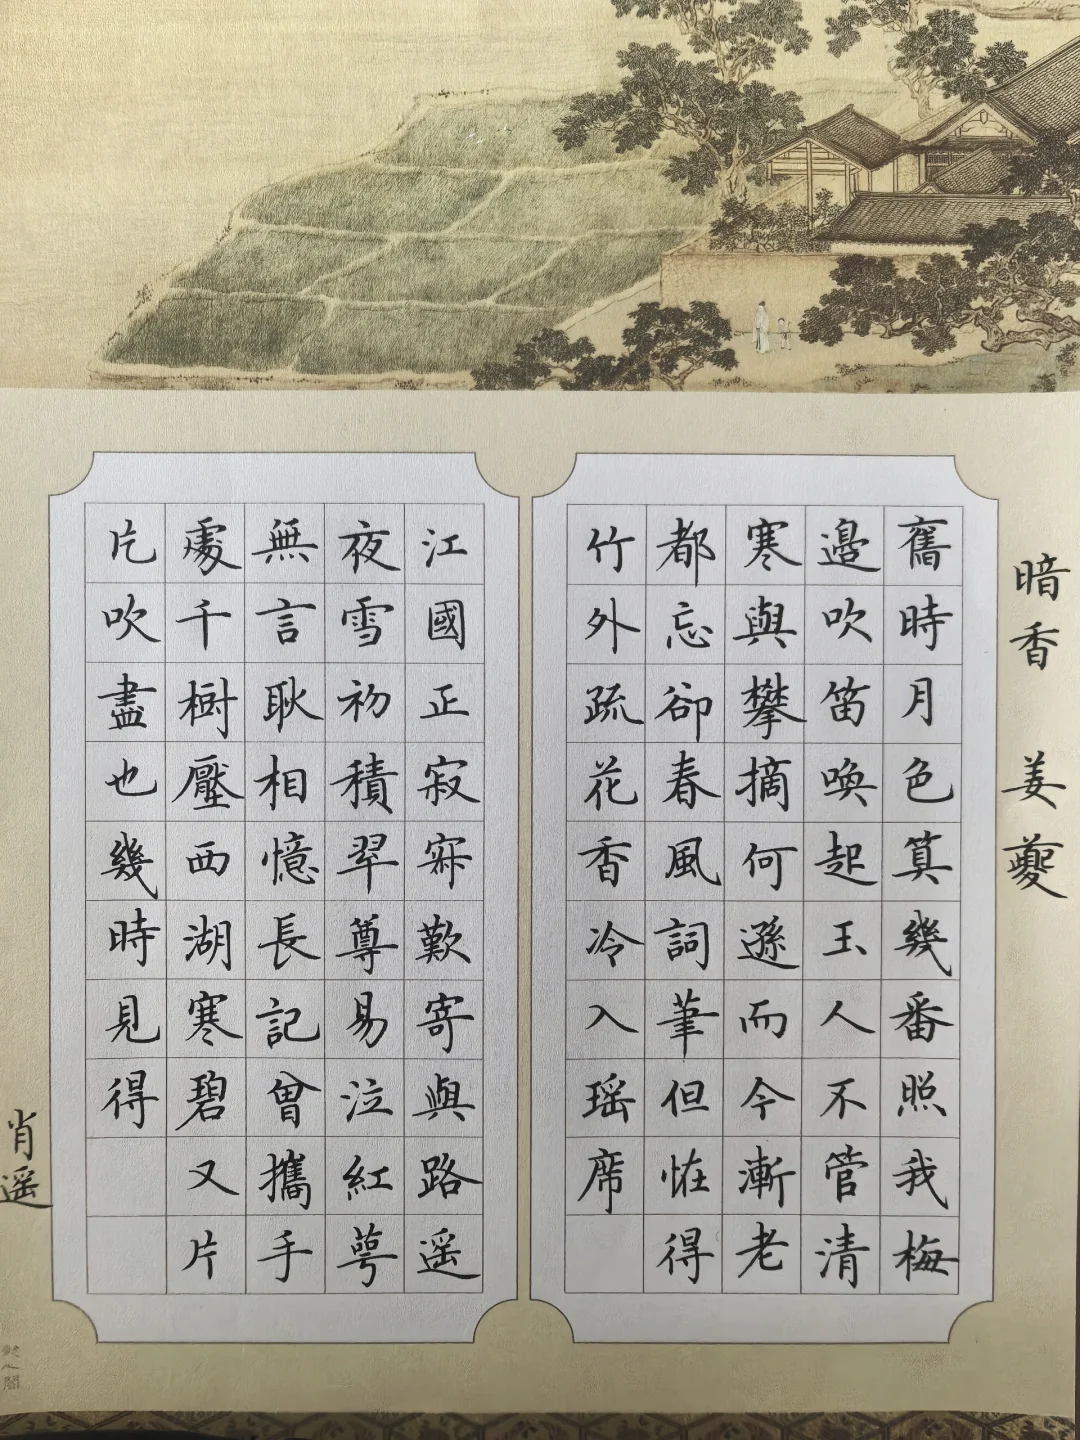 暗香 姜夔
舊時月色算幾番照我梅
邊吹笛喚起玉人不管清
寒與攀摘何遜而今漸老
都忘卻春風詞筆但恠得
竹外疏花香冷入瑶席
江國正寂寂歎寄與路遥
夜雪初積翠尊易泣紅萼
無言耿相憶長記曾攜手
處千樹壓西湖寒碧又片
片吹盡也幾時見得
肖遥